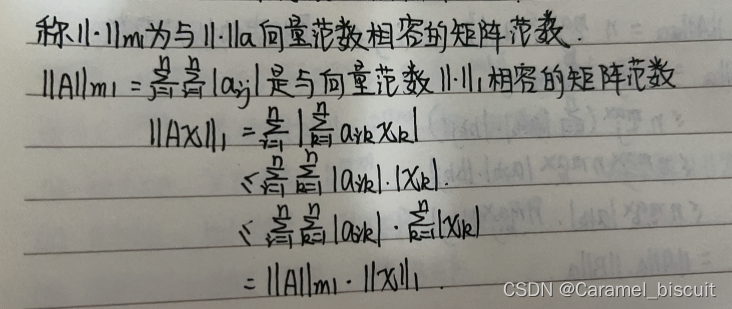 称||·||m1为与||·||a向量范数相容的矩阵范数.
||A||m1 = ∑_{j=1}^{n} ∑_{i=1}^{n} |aij| 是与向量范数||·||1相容的矩阵范数
||AX||1 = ∑_{i=1}^{n} |∑_{k=1}^{n} aik xk|
≤ ∑_{i=1}^{n} ∑_{k=1}^{n} |aik|·|xk|.
≤ ∑_{i=1}^{n} ∑_{k=1}^{n} |aik| · ∑_{k=1}^{n} |xk|
= ||A||m1 · ||X||1.
CSDN @Caramel_biscuit